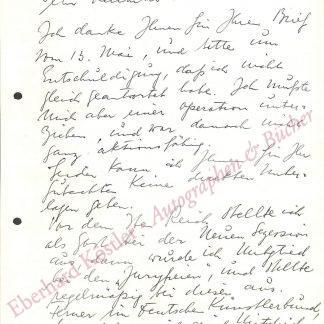 Ich danke Ihnen für Ihren Brief
vom 13. Mai, und bitte um
Entschuldigung, daß ich nicht
gleich geantwortet habe. Ich mußte
mich aber einer Operation unter-
ziehen, und war danach nicht
ganz aktionsfähig.
Leider kann ich Ihnen für Ihr
Gutachten keine direkten Unter-
lagen geben.
Vor dem III. Reich stellte ich
als Gast bei der Neuen Sezession
aus, dann wurde ich Mitglied
bei den Juryfreien, und stellte
regelmäßig bei diesen aus.
Ferner im Deutschen Künstlerbund,
Mitglied
Eberhard Köstler Autographen & Bücher